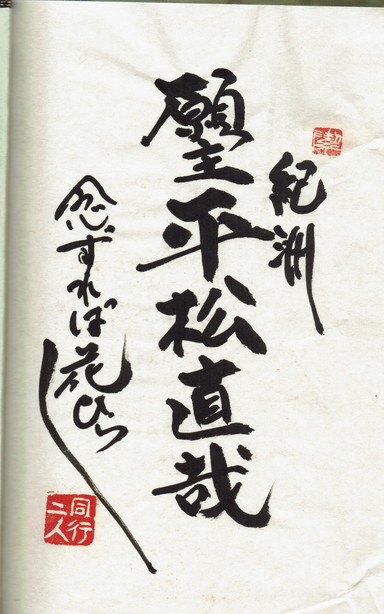 紀洲
願主平松直哉
念ずれば花ひらく
同行
二人